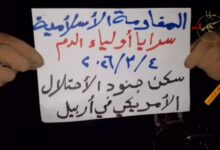 المقاومة الاسلامية
سرايا أولياء الدم
٢٠٢٦/٣/٤
سكن جنود الأحتلال
الأمريكي في أربيل